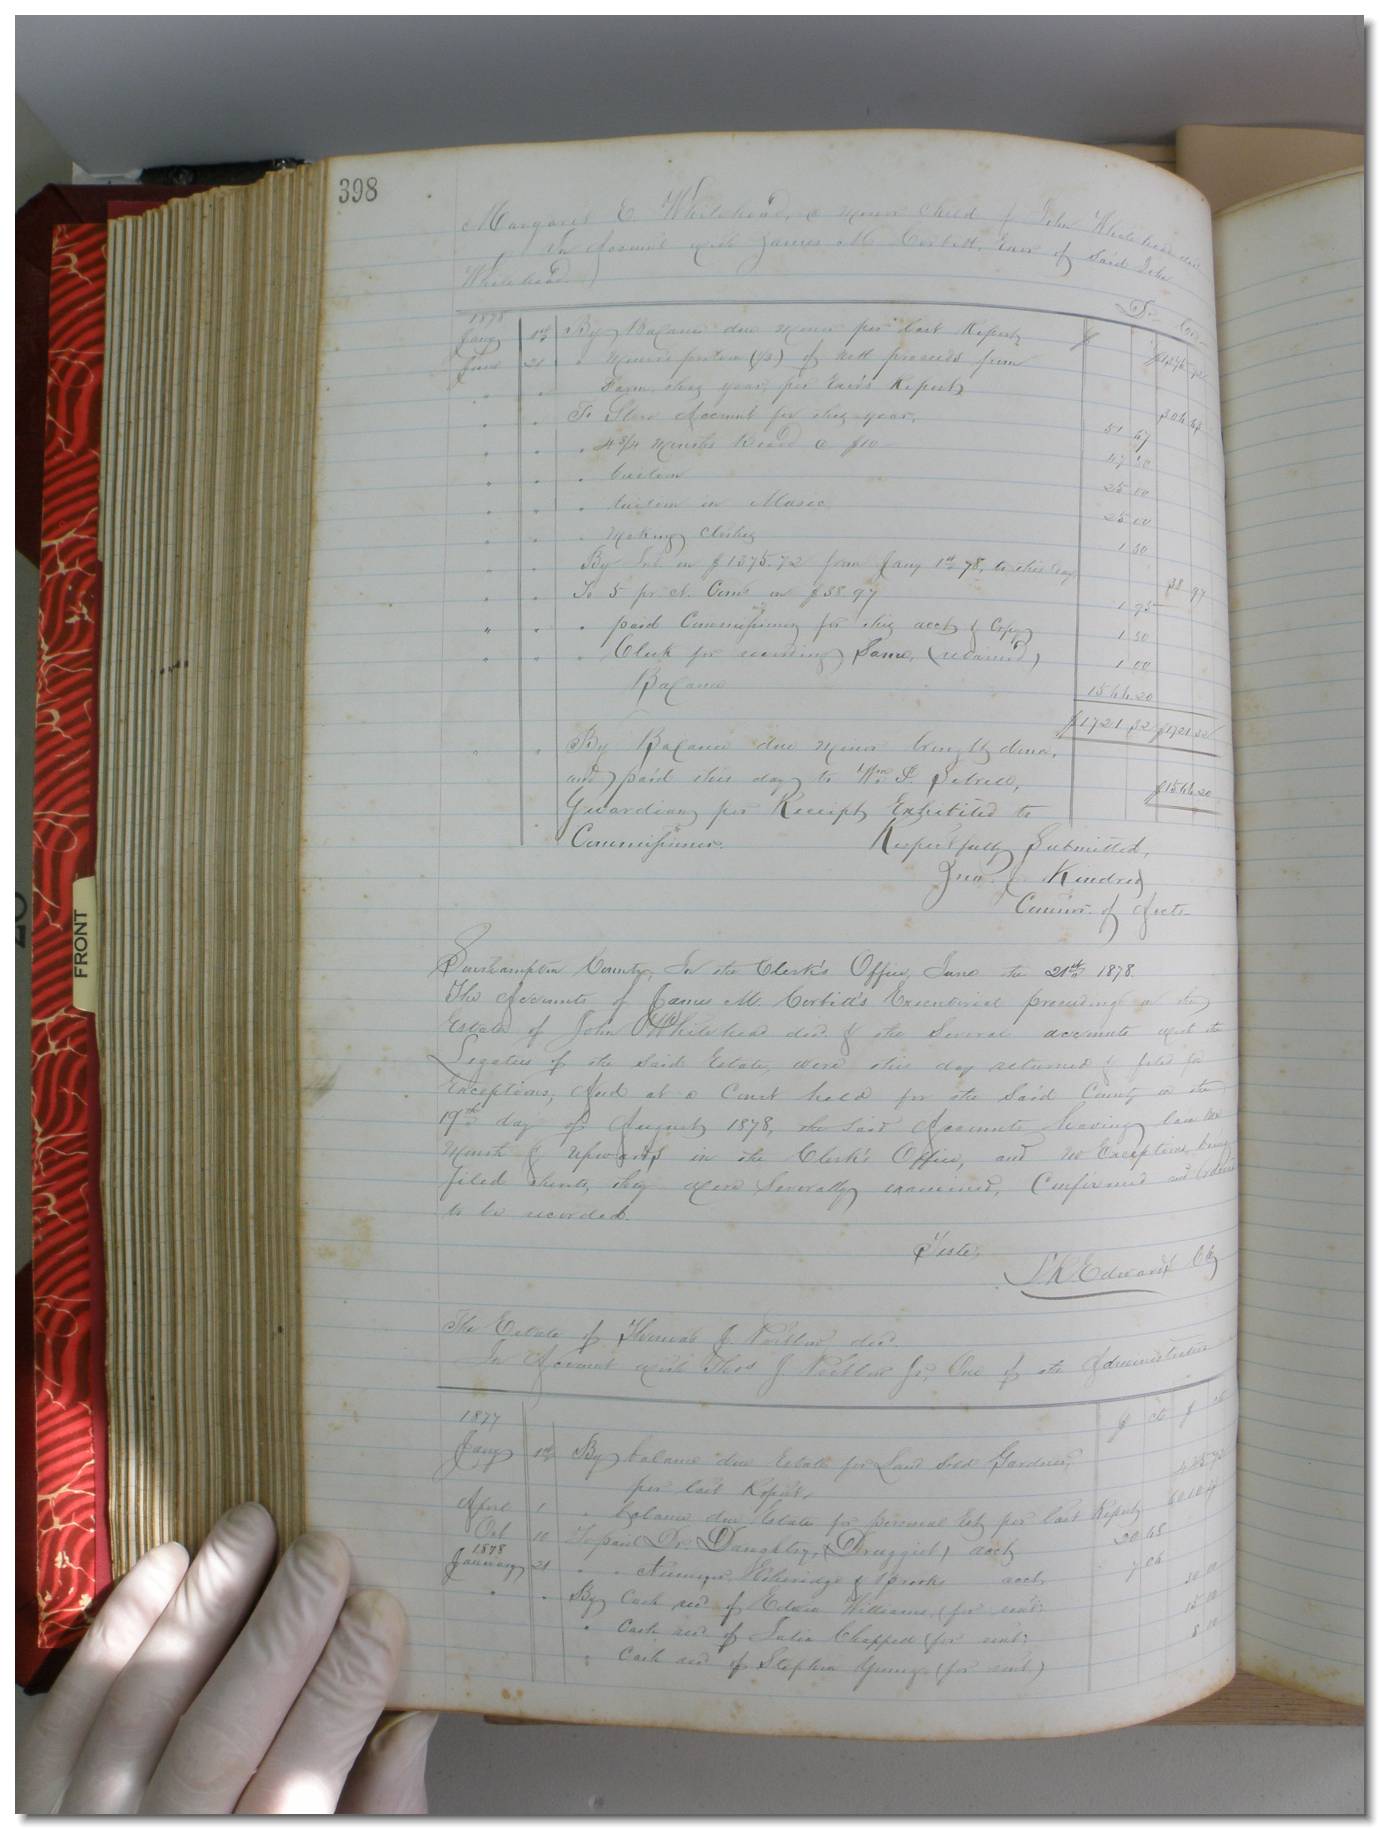 398
Margaret E. Whitehead, a minor child of John Whitehead decd.
In Account with James M. Corbitt, Exor of Said John
Whitehead.
Dr. Cr.
1878
Jany 1st By Balance due minor per last Report $1375.72
June 21 " Minor's portion (1/3) of nett proceeds from
" " Farm this year, per Exor's Report 306 63
" " To Store Account for this year, 51 67
" " " 4 3/4 Months Board @ $10 47 50
" " " tuition 25 00
" " " tuition in Music 25 00
" " " making clothes 1 50
" " By Int. on $1375.72 from Jany 1st 78, to this day 38 97
" " To 5 pr. ct. Coms. on $38.97 1 95
" " " paid Commissioner for this acct & Copy 1 50
" " " Clerk for recording Same, (retained) 1 00
Balance 1566 20
$1721 32 $1721 32
" " By Balance due minor brought down,
and paid this day to Wm
Guardian, per Receipt Exhibited to $1566 20
Commissioner.
Respectfully Submitted,
Jno. J. Kindred
Commr. of Accts
Southampton County, In the Clerk's Office, June the 21st 1878.
The Accounts of James M. Corbitt's Executorial proceedings on the
Estate of John Whitehead decd. & the Several accounts with the
Legatees of the Said Estate, were this day returned & filed for
Exceptions, And at a Court held for the Said County on the
19th day of August 1878, the Said Accounts having lain
Month & Upwards in the Clerk's Office, and no Exceptions being
filed thereto, they were Severally examined, Confirmed and Ordered
to be recorded.
Teste,
L R Edwards Clk
The Estate of Thomas J. decd.
In Account with Thos J. Jr., One of the Administrators
$ cts $ cts
1877
Jany 1st By balance due Estate for Land Sold Gardner,
per last Report,
April 1 " balance due Estate for personal Est. per last Report
Oct 10 To paid Dr. Daughtry, (Druggist) acct 20 65
1878
January 21 " " Etheridge & Brooks acct 7 06
" " By Cash recd of Edwin Williams, (for rent) 30 00
" Cash recd of Chappell (for rent) 15 00
" Cash recd of Stephen Young (for rent) 8 00
FRONT